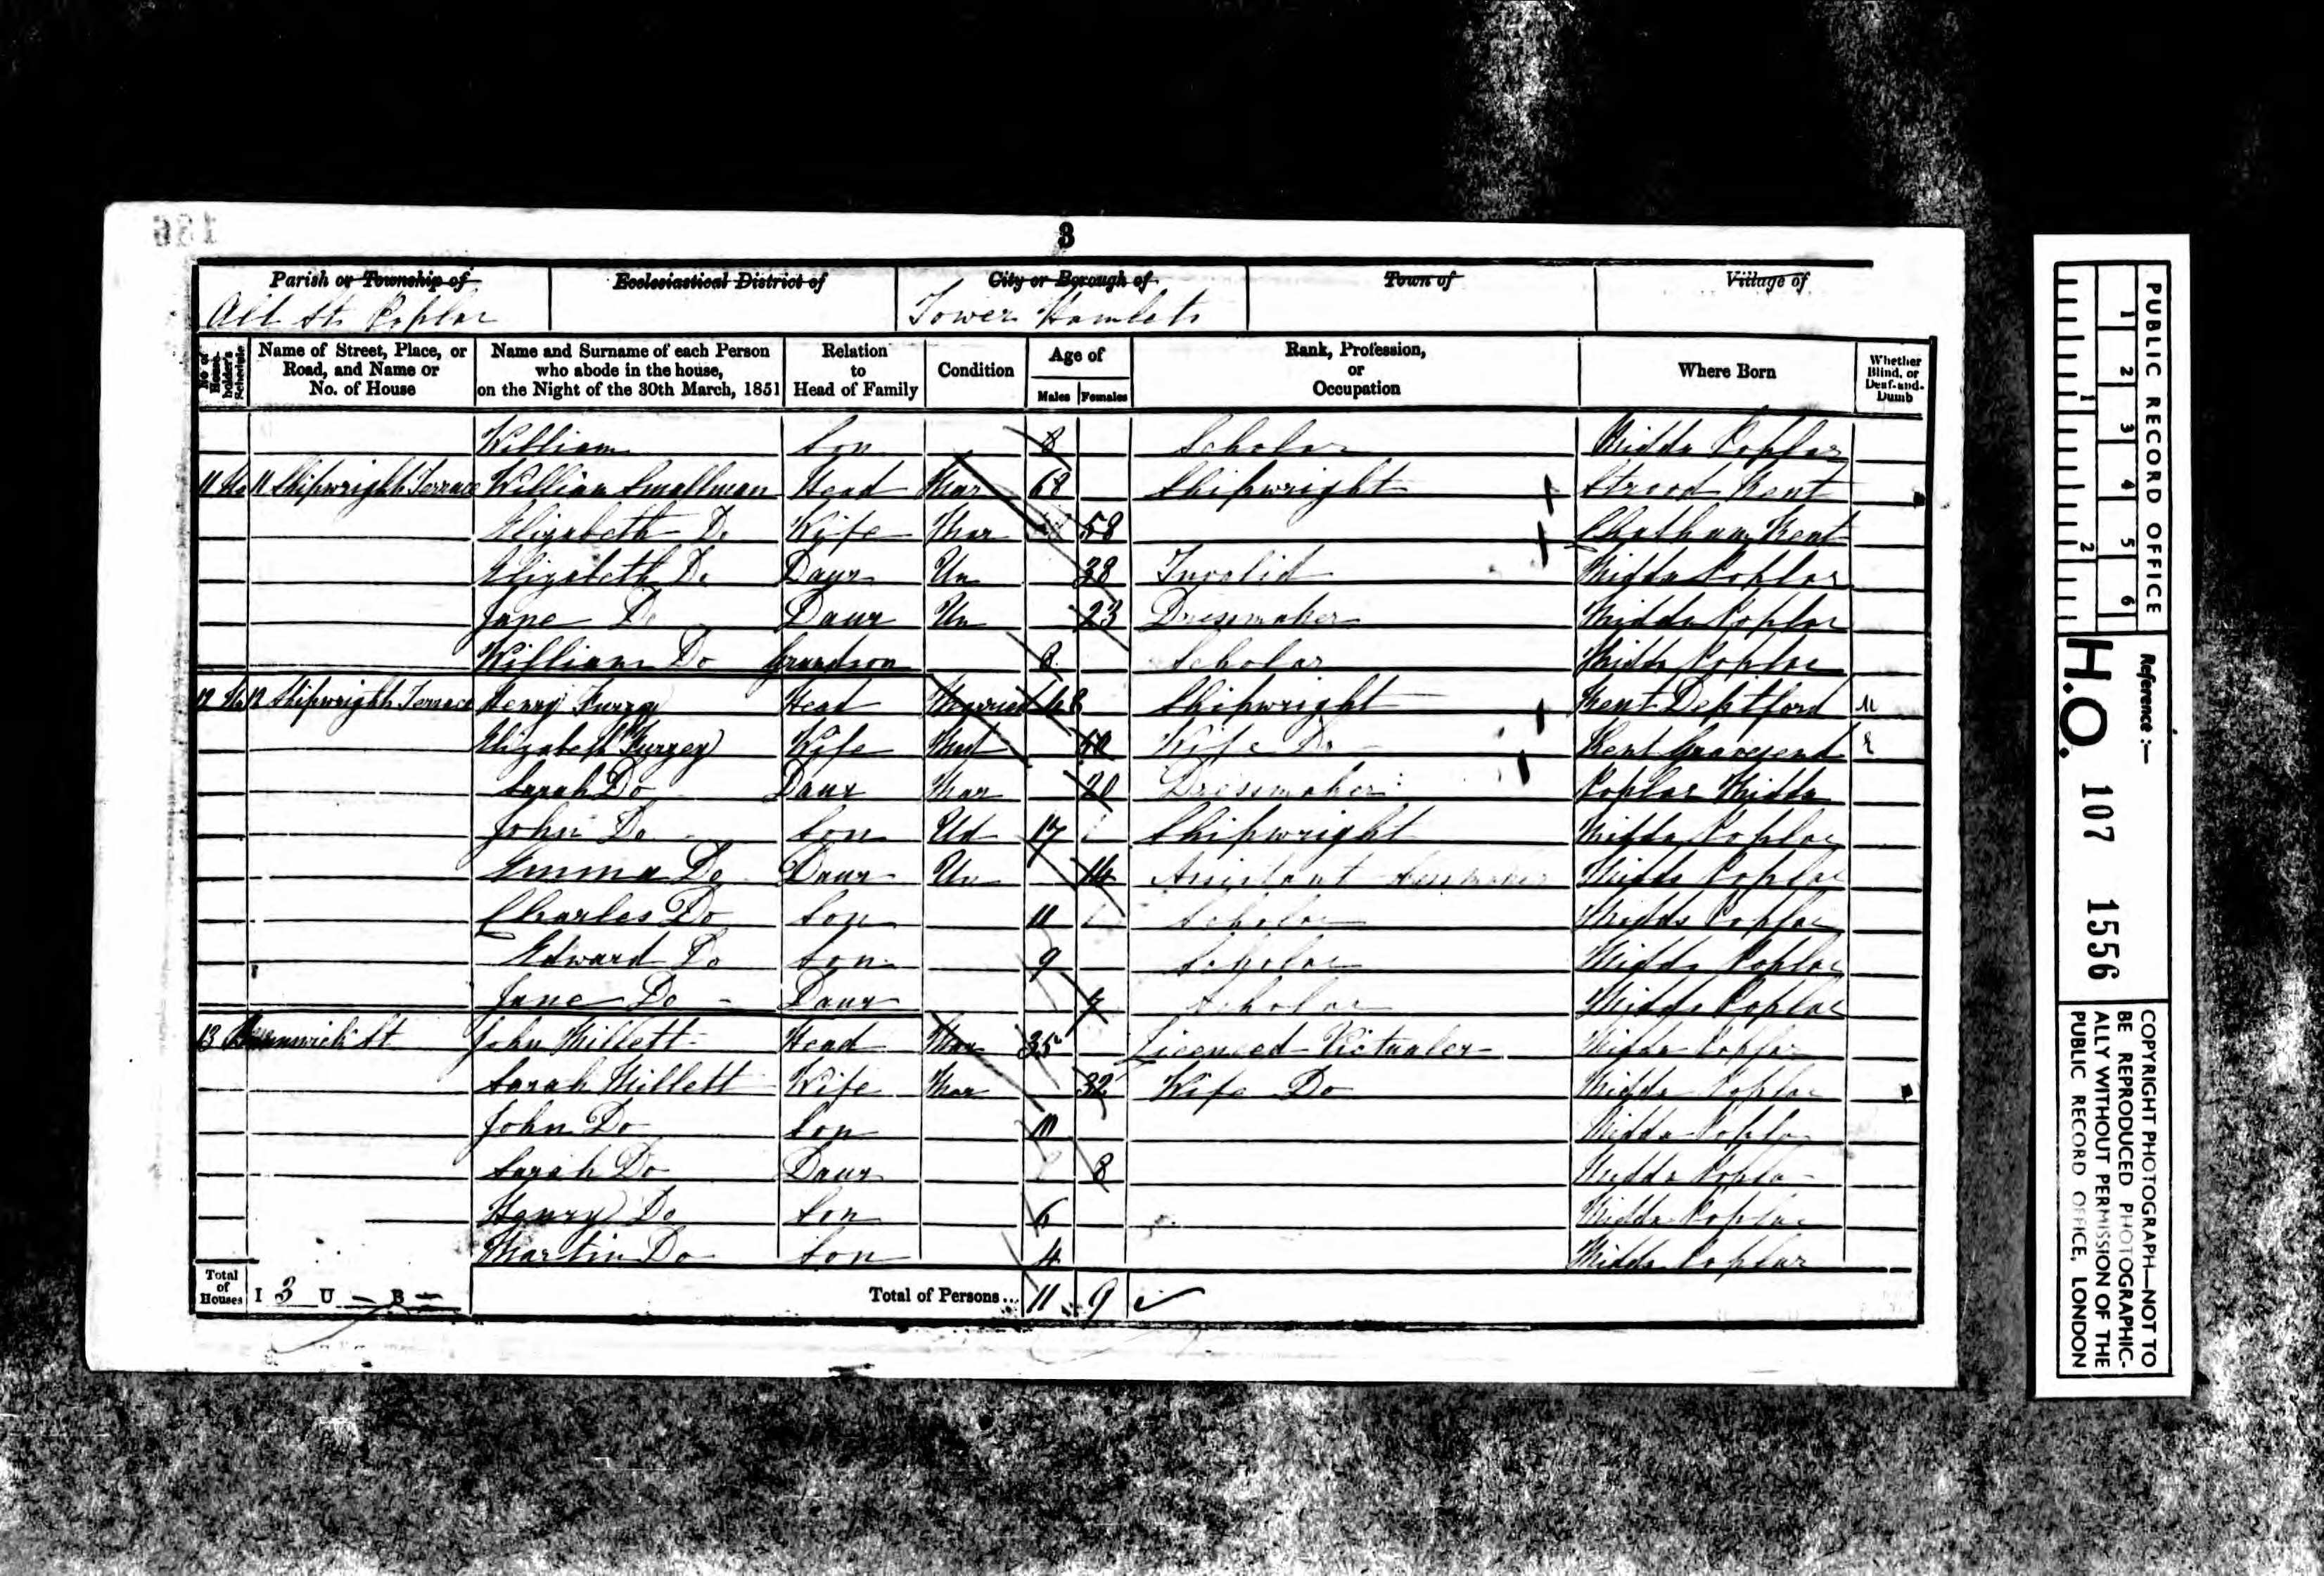 186
3
Parish or Township of
Ecclesiastical District of
City or Borough of
Town of
Village of
All St. Poplar
Tower Hamlets
No. of Householder's Schedule
Name of Street, Place, or Road, and Name or No. of House
Name and Surname of each Person who abode in the house, on the Night of the 30th March, 1851
Relation to Head of Family
Condition
Age of
Males Females
Rank, Profession, or Occupation
Where Born
Whether Blind, or Deaf-and-Dumb
William Son 8 Scholar Midda Poplar
11 No 11 Shipwright Terrace William Smallman Head Mar 68 Shipwright Strood Kent
Elizabeth Do Wife Mar 58 Chatham Kent
Elizabeth Do Daur Un 38 Invalid Midda Poplar
Jane Do Daur Un 23 Dressmaker Midda Poplar
William Do Grandson 8 Scholar Midda Poplar
12 No 12 Shipwright Terrace Henry Furzey Head Married 48 Shipwright Kent Deptford
Elizabeth Furzey Wife Mar Wife Do Kent Gravesend
Sarah Do Daur Mar 20 Dressmaker Poplar Midda
John Do Son Ud 17 Shipwright Midda Poplar
Emma Do Daur Un 14 Assistant Dressmaker Midda Poplar
Charles Do Son 11 Scholar Midda Poplar
Edward Do Son 9 Scholar Midda Poplar
Jane Do Daur 7 Scholar Midda Poplar
13 Brunswick St John Millett Head Mar 35 Licensed Victualer Midda Poplar
Sarah Millett Wife Mar 32 Wife Do Midda Poplar
John Do Son 10 Midda Poplar
Sarah Do Daur 8 Midda Poplar
Henry Do Son 6 Midda Poplar
Martin Do Son 4 Midda Poplar
Total of Houses I 3 U - B -
Total of Persons... 11 9
PUBLIC RECORD OFFICE
1 2 3 4 5 6
1 2
Reference :-
H.O. 107 1556
COPYRIGHT PHOTOGRAPH—NOT TO
BE REPRODUCED PHOTOGRAPHIC-
ALLY WITHOUT PERMISSION OF THE
PUBLIC RECORD OFFICE, LONDON